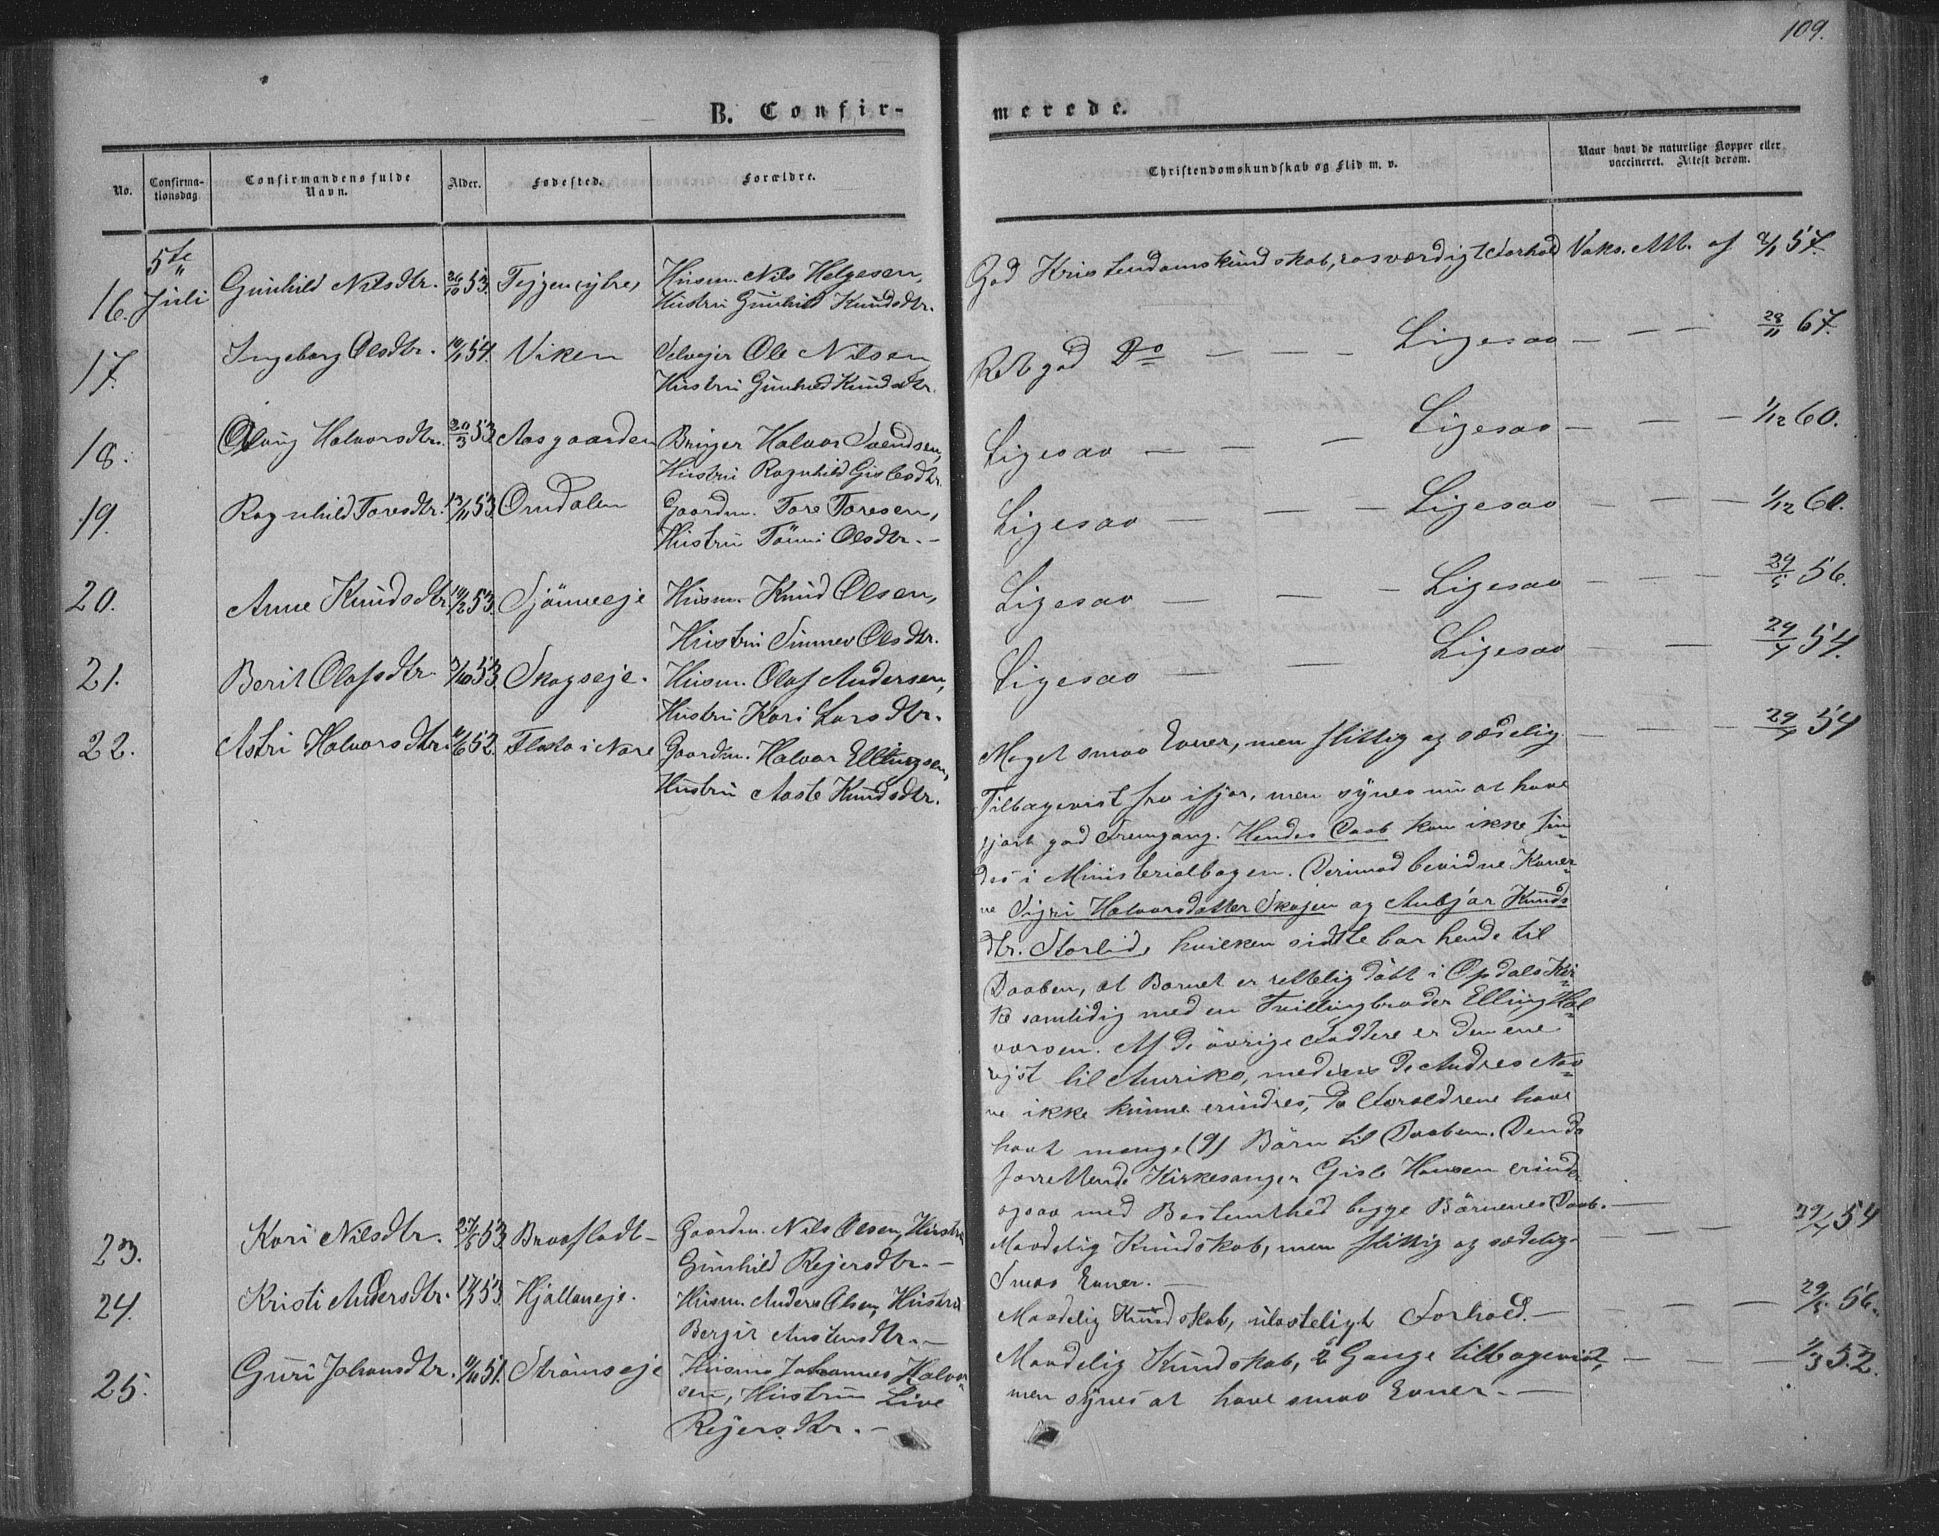 109.
B. Confir-
merede.
No.
Confirma-
tionsdag
Confirmandens fulde
Navn.
Alder.
Fødested.
Forældre.
Christendomskundskab og Flid m. v.
Naar havt de naturlige Kopper eller
vaccineret. Attest derom.
5te
16. Juli Gunhild Nilsdtr. 26/10 53. Husm. Nils Helgesen,
Hustru Gunhild Knudsdtr.
God Kristendomskundskab, rosværdigt Forhold Vaks. Att. af 57.
17. Ingeborg Olsdtr. 54. Viken Selvejer Ole Nilsen
Hustru Gunhild Knudsdtr.
Ret god Do — — — Ligesaa — — — 28/11 67.
18. Olaug Halvorsdtr. 20/3 53. Aasgaarden Halvor Svendsen,
Hustru Ragnhild Gislesdtr.
Ligesaa — — — Ligesaa — — — 1/12 60.
19. Ragnhild Toresdtr. 13/11 53. Ørndalen Gaardm. Tore Toresen,
Hustru Tönni Olsdtr. —
Ligesaa — — — Ligesaa — — — 1/12 60.
20. Anne Knudsdtr. 53. Sjönneeje Husm. Knud Olsen,
Hustru Sinnev Olsdtr.
Ligesaa — — — Ligesaa — — — 29/5 56.
21. Berit Olafsdtr. 53. Skogseje. Husm. Olaf Andersen,
Hustru Kari Larsdtr.
Ligesaa — — Ligesaa — — 29/4 54.
22. Astri Halvorsdtr. 52. Flaata i Nore Gaardm. Halvor Ellingsen,
Hustru Aaste Knudsdtr.
Meget smaa Evner, men flittig og sædelig. — — — 29/4 54
Tilbagevist fra ifjor, men synes nu at have
gjort god Fremgang. Hendes Daab kan ikke fin-
des i Ministerialbogen. Derimod bevidne Koner-
ne Sigri Halvorsdatter Skogen og Anbjør Knuds
dtr. Storlid, hvilken sidste bar hende til
Daaben, at Barnet er rettelig döbt i Opdals Kir-
ke samtidig med en Tvillingbroder Elling Hal-
vorsen. Af de övrige Faddere er den ene
rejst til Amerika, medens de Andres Nav-
ne ikke kunne erindres, da Forældrene have
havt mange (9) Börn til Daaben. Den da
forrettende Kirkesanger Gisle Hansen erindr
ogsaa med Bestemthed begge Börnenes Daab. —
23. Kari Nilsdtr. 27/5 53 Braafladt — Gaardm. Nils Olsen, Hustru
Gunhild Rejersdtr. —
Maadelig Kundskab, men flittig og sædelig. — — 29/4 54
Smaa Evner. —
24. Kristi Andersdtr. 53. Hjallaneje. Husm. Anders Olsen, Hustru
Bergit Austensdtr. —
Maadelig Kundskab, ulasteligt Forhold. — — — 29/5. 56.
25. Guri Johansdtr. 51. Strömseje Husm. Johannes Halvor-
sen, Hustru Live
Rejersdtr. —
Maadelig Kundskab, 2 Gange tilbagevist, — — — 1/3 52.
men synes at have smaa Evner. —